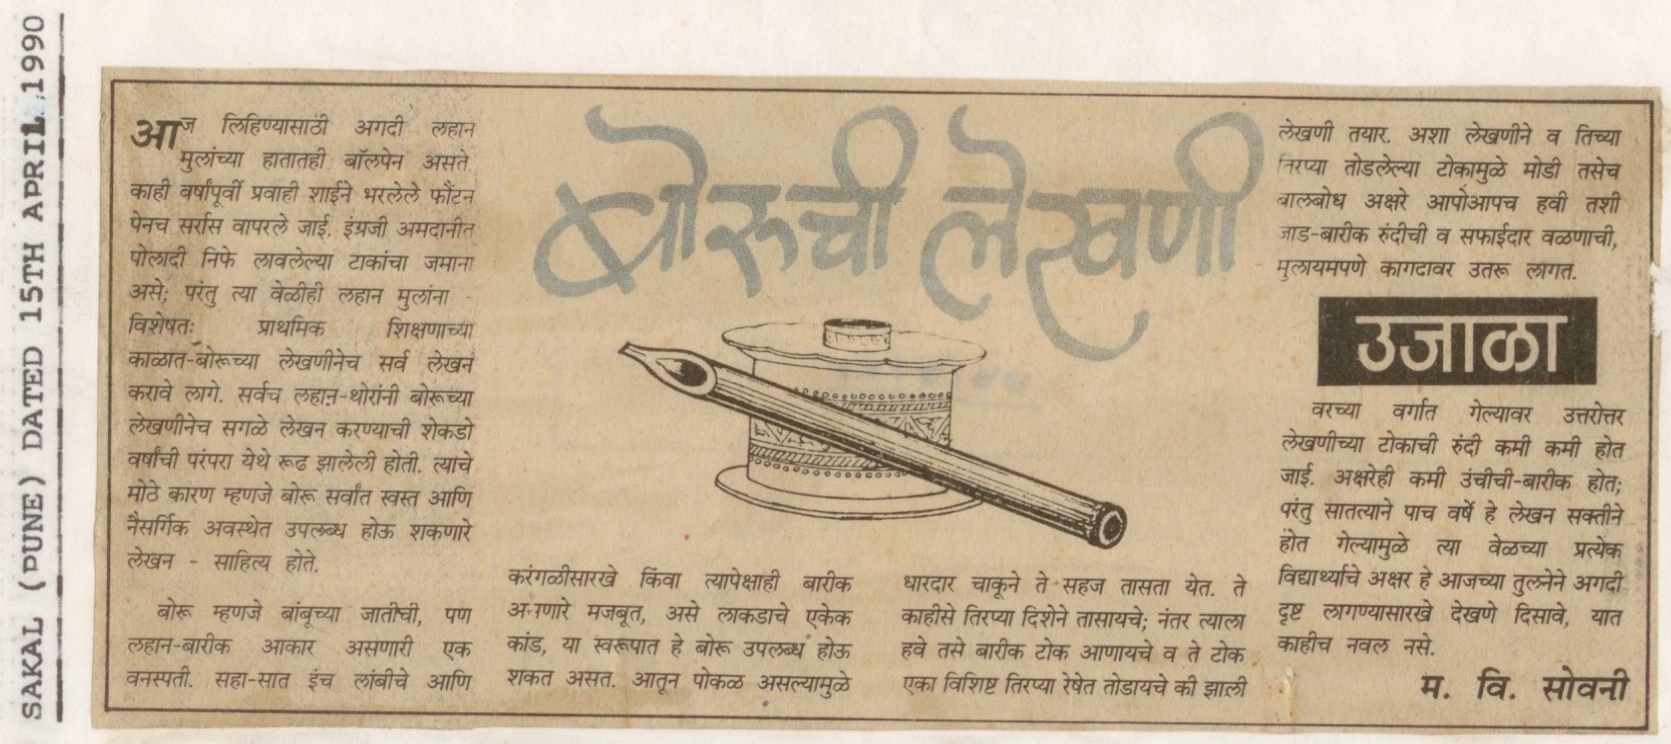 SAKAL (PUNE) DATED 15TH APRIL 1990
बोरुची लेखणी
आज लिहिण्यासाठी अगदी लहान
मुलांच्या हातातही बॉलपेन असते.
काही वर्षांपूर्वी प्रवाही शाईने भरलेले फौंटन
पेनच सर्रास वापरले जाई. इंग्रजी अमदानीत
पोलादी निफे लावलेल्या टाकांचा जमाना
असे; परंतु त्या वेळीही लहान मुलांना -
विशेषतः प्राथमिक शिक्षणाच्या
काळात-बोरूच्या लेखणीनेच सर्व लेखन
करावे लागे. सर्वच लहान-थोरांनी बोरूच्या
लेखणीनेच सगळे लेखन करण्याची शेकडो
वर्षांची परंपरा येथे रूढ झालेली होती. त्याचे
मोठे कारण म्हणजे बोरू सर्वांत स्वस्त आणि
नैसर्गिक अवस्थेत उपलब्ध होऊ शकणारे
लेखन - साहित्य होते.
बोरू म्हणजे बांबूच्या जातीची, पण
लहान-बारीक आकार असणारी एक
वनस्पती. सहा-सात इंच लांबीचे आणि
करंगळीसारखे किंवा त्यापेक्षाही बारीक
असणारे मजबूत, असे लाकडाचे एकेक
कांड, या स्वरूपात हे बोरू उपलब्ध होऊ
शकत असत. आतून पोकळ असल्यामुळे
धारदार चाकूने ते सहज तासता येत. ते
काहीसे तिरप्या दिशेने तासायचे; नंतर त्याला
हवे तसे बारीक टोक आणायचे व ते टोक
एका विशिष्ट तिरप्या रेषेत तोडायचे की झाली
लेखणी तयार. अशा लेखणीने व तिच्या
तिरप्या तोडलेल्या टोकामुळे मोडी तसेच
बालबोध अक्षरे आपोआपच हवी तशी
जाड-बारीक रुंदीची व सफाईदार वळणाची,
मुलायमपणे कागदावर उतरू लागत.
उजाळा
वरच्या वर्गात गेल्यावर उत्तरोत्तर
लेखणीच्या टोकाची रुंदी कमी कमी होत
जाई. अक्षरेही कमी उंचीची-बारीक होत;
परंतु सातत्याने पाच वर्षे हे लेखन सक्तीने
होत गेल्यामुळे त्या वेळच्या प्रत्येक
विद्यार्थ्याचे अक्षर हे आजच्या तुलनेने अगदी
दृष्ट लागण्यासारखे देखणे दिसावे, यात
काहीच नवल नसे.
म. वि. सोवनी